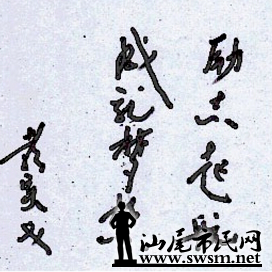 励志起航
成就梦想
汕尾市民网
www.swsm.net